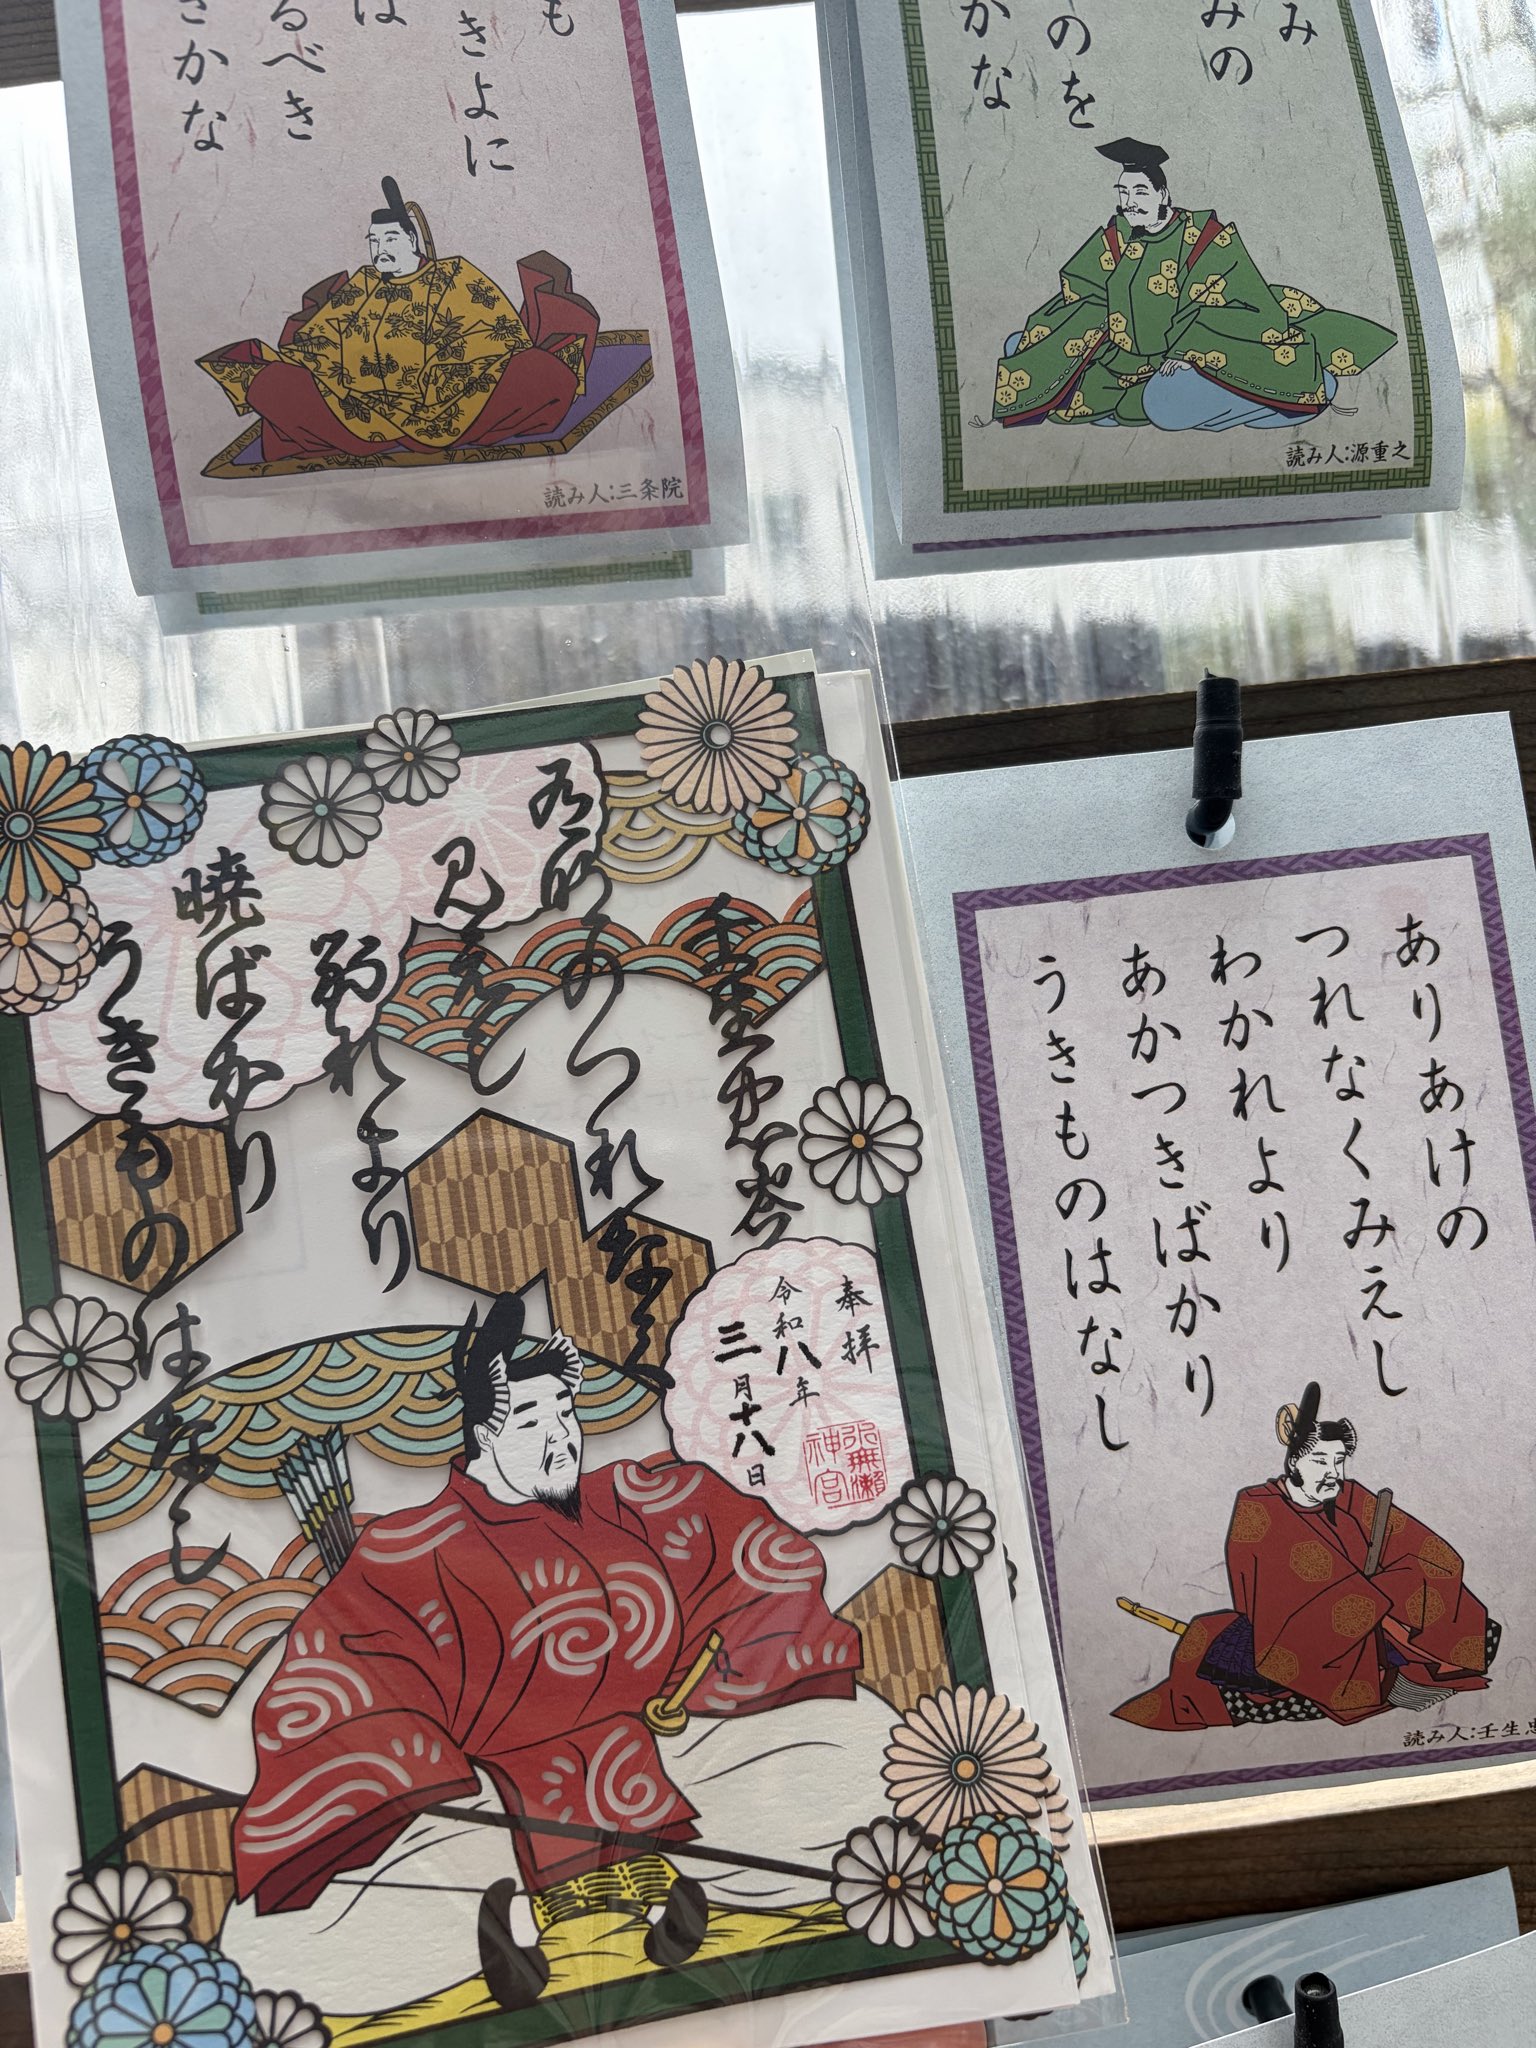 も
きよに
は
るべき
さかな
読み人：三条院
み
みの
のを
かな
読み人：源重之
壬生忠岑
有明のつれなく
見えし
別れより
暁ばかり
うきものはなし
奉拝
令和八年
三月十八日
水無瀬神宮
ありあけの
つれなくみえし
わかれより
あかつきばかり
うきものはなし
読み人：壬生忠